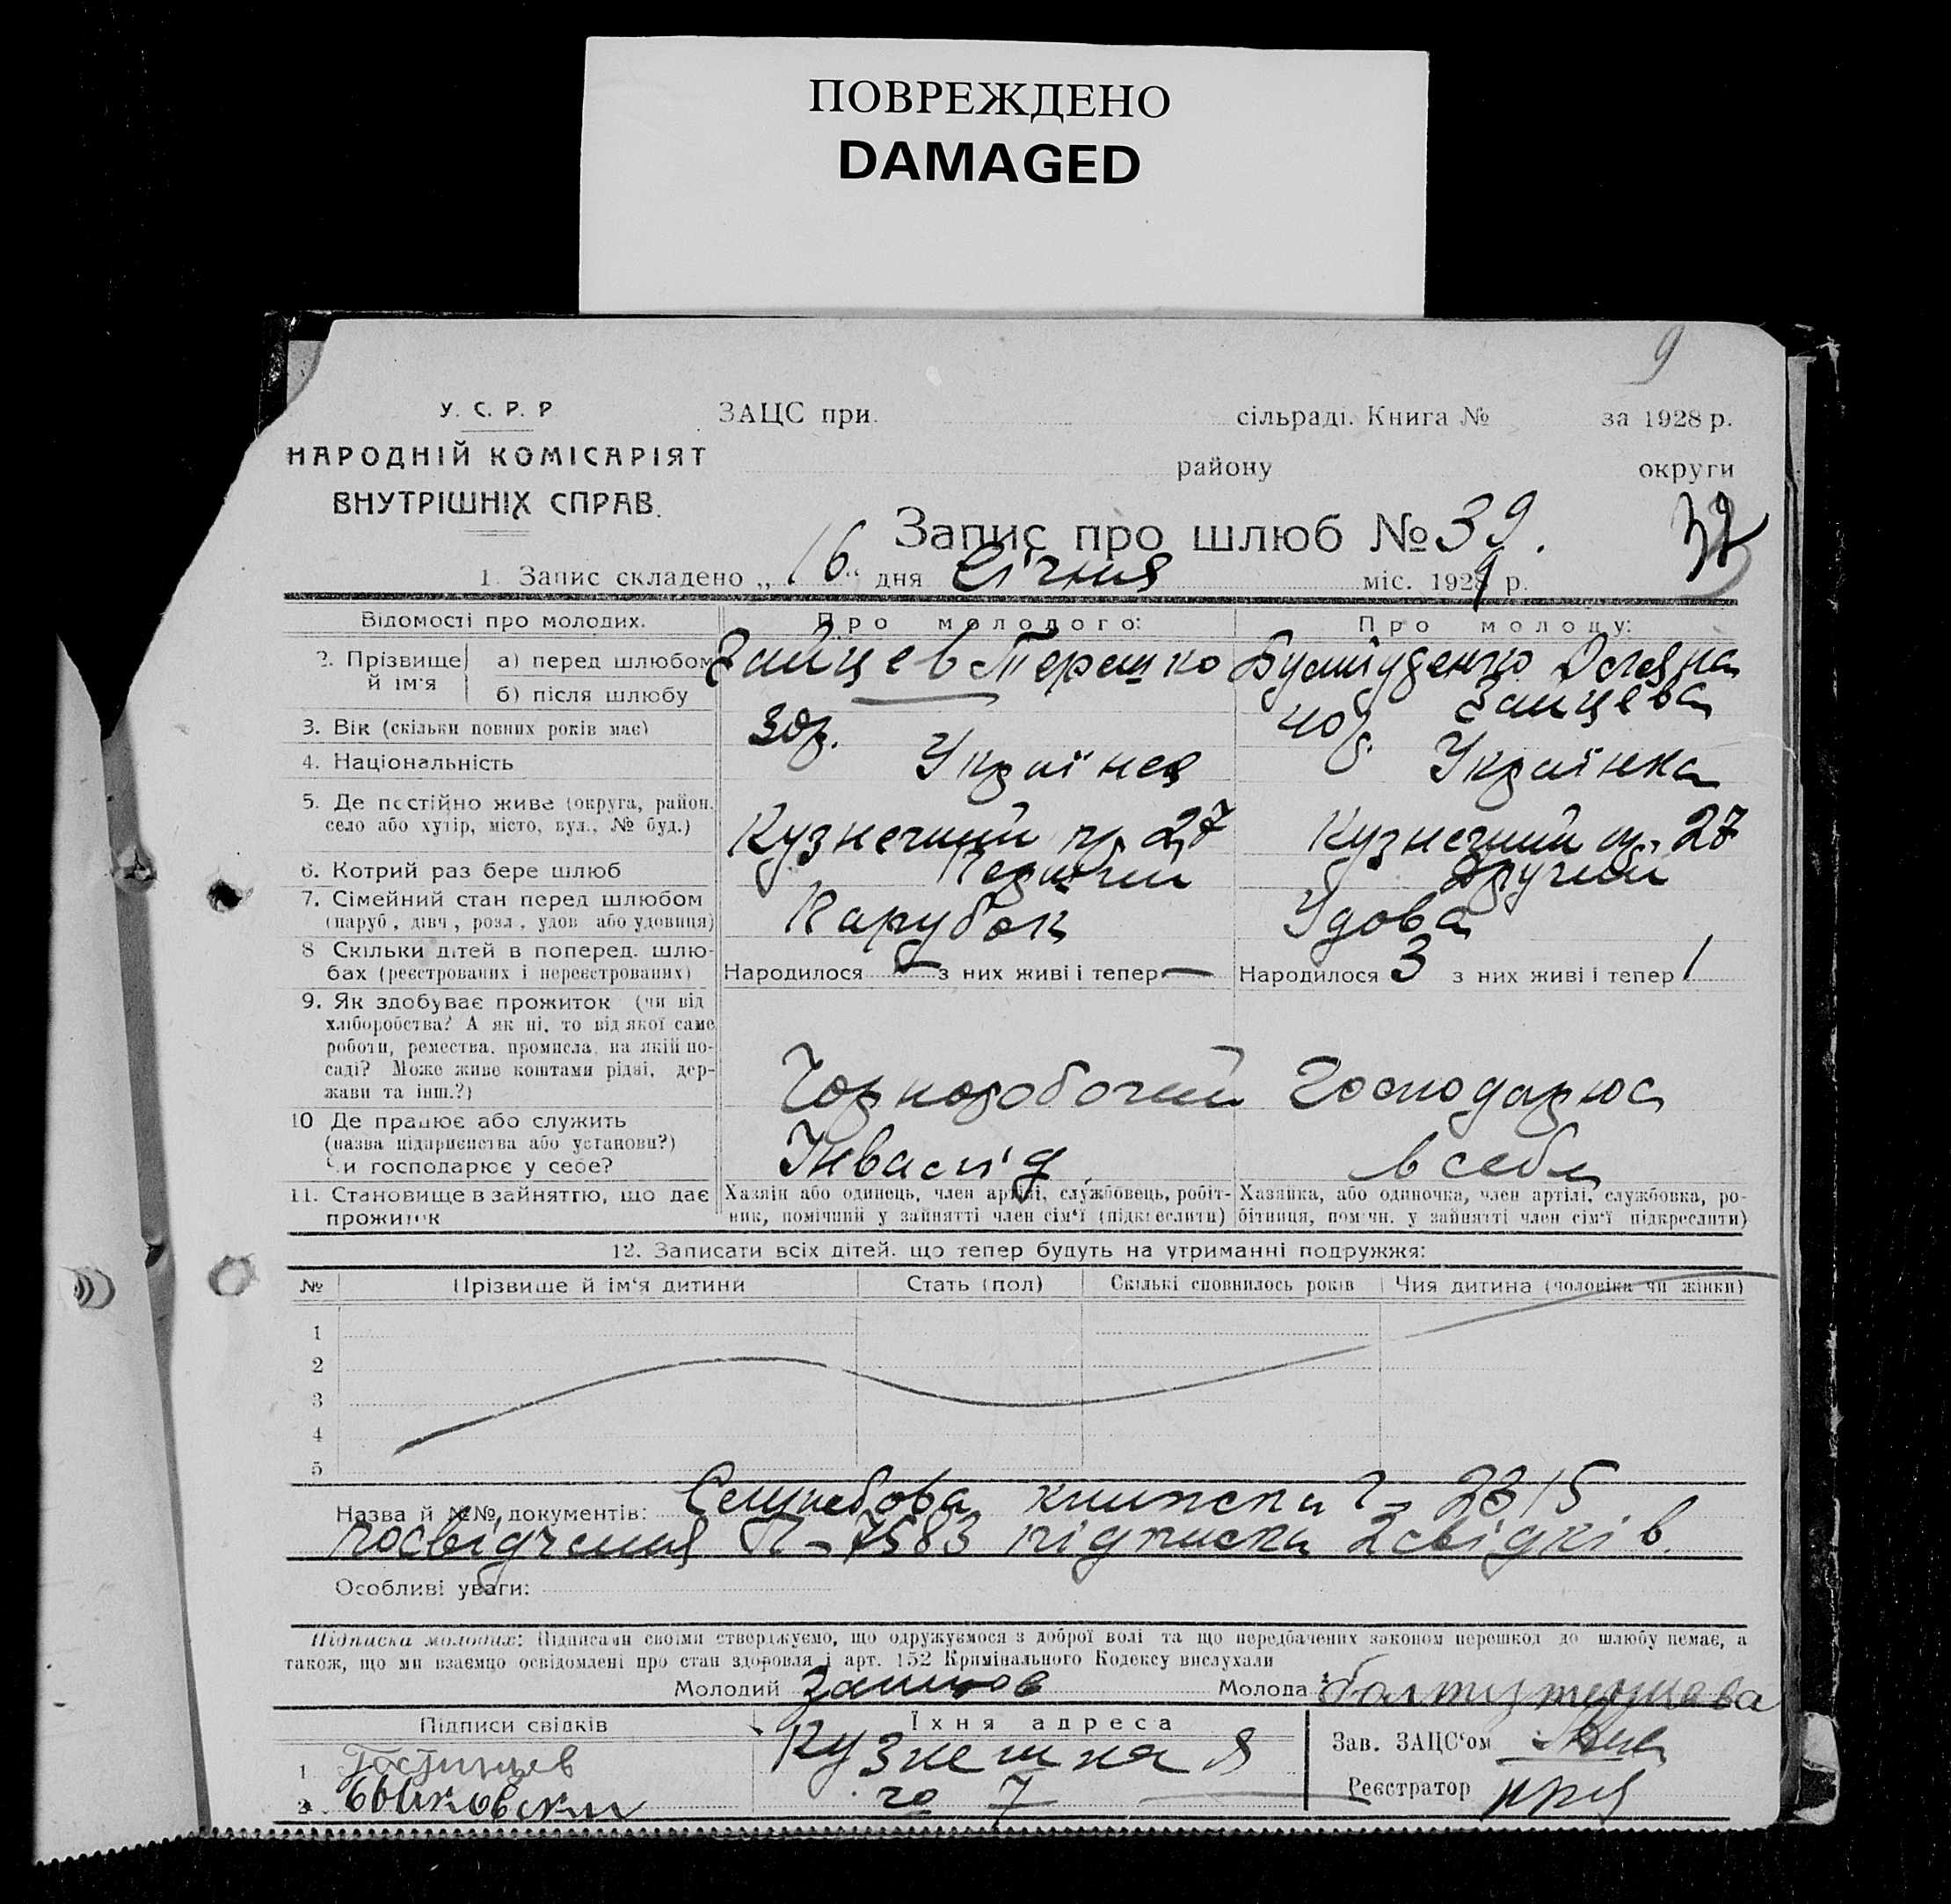 ПОВРЕЖДЕНО
DAMAGED
9
У. С. Р. Р
НАРОДНІЙ КОМІСАРІЯТ
ВНУТРІШНІХ СПРАВ.
ЗАЦС при сільраді. Книга № за 1928 р.
району округи
Запис про шлюб № 39.
1. Запис складено „16“ дня Січня міс. 1929 р.
Відомості про молодих. Про молодого: Про молоду:
2. Прізвище й ім'я а) перед шлюбом Зайцев Терешко
б) після шлюбу Зайцева
3. Вік (скільки повних років має) 30р. 40р.
4. Національність Українец Українка
5. Де постійно живе (округа, район, село або хутір, місто, вул., № буд.) Кузнечний 27 Кузнечний 27
6. Котрий раз бере шлюб Первий Другий
7. Сімейний стан перед шлюбом (паруб., дівч., розл., удов. або удовиця) Парубок Удова
8 Скільки дітей в поперед. шлюбах (реєстрованих і нереєстрованих) Народилося — з них живі і тепер — Народилося 3 з них живі і тепер 1
9. Як здобуває прожиток (чи від
хліборобства? А як ні, то від якої саме
роботи, ремества, промисла, на якій по-
саді? Може живе коштами рідні, дер-
жави та інш.?) Чорноробочий Господарює
10 Де працює або служить
(назва підприємства або установи?)
Чи господарює у себе? Інвалід в себе
11. Становище в зайняттю, що дає прожиток
Хазяїн або одинець, член артілі, службовець, робіт-
ник, помічний у зайнятті член сім'ї (підкреслити)
Хазяйка, або одиночка, член артілі, службовка, ро-
бітниця, помічн. у зайнятті член сім'ї підкреслити)
12. Записати всіх дітей, що тепер будуть на утриманні подружжя:
№ Прізвище й ім'я дитини Стать (пол) Скількі сповнилось років Чия дитина (чоловіка чи жінки)
1
2
3
4
5
Назва й №№ документів: Службова книжка 2315
посвідчення П-7583 підписка 2 свідків.
Особливі уваги:
Підписка молодих: Підписами своїми стверджуємо, що одружуємося з доброї волі та що передбачених законом перешкод до шлюбу немає, а
також, що ми взаємно освідомлені про стан здоровля і арт. 152 Кримінального Кодексу вислухали
Молодий Молода
Підписи свідків Їхня адреса Зав. ЗАЦС'ом
1 Гостинцев
2.
7
Реєстратор